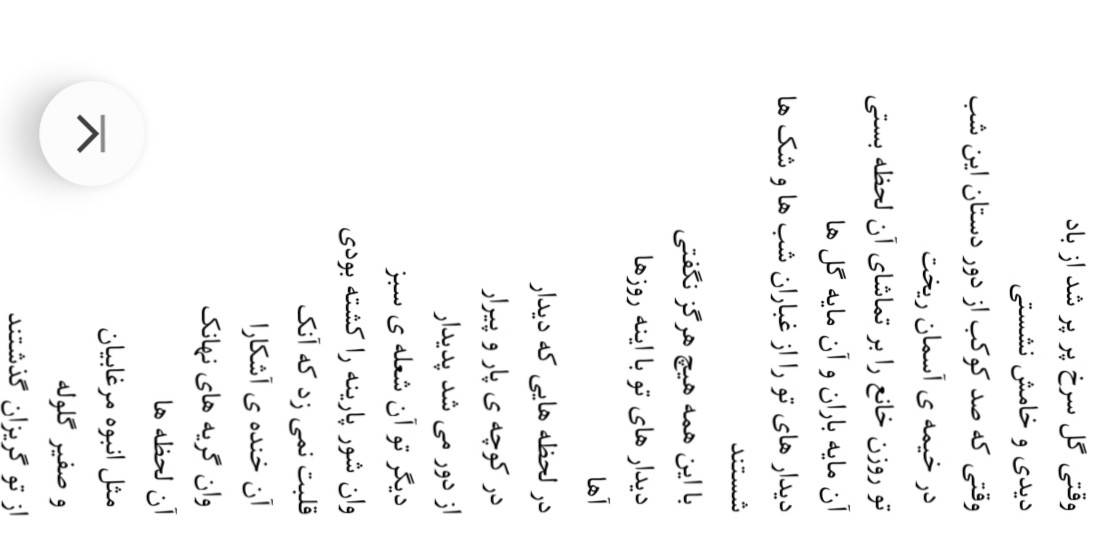 وقتی گل سرخ پر پر شد از باد
دیدی و خامش نشستی
وقتی که صد کوکب از دور دستان این شب
در خیمه ی آسمان ریخت
تو روزن خانع را بر تماشای آن لحظه بستی
آن مایه باران و آن مایه گل ها
دیدار های تو را از غباران شب ها و شک ها
شستند
با این همه هیچ هرگز نگفتی
دیدار های تو با اینه روزها
آها
در لحظه هایی که دیدار
در کوچه ی پار و پیرار
از دور می شد پدیدار
دیگر تو آن شعله ی سبز
وان شور پارینه را کشته بودی
قلبت نمی زد که آنک
آن خنده ی آشکارا
وان گریه های نهانک
آن لحظه ها
مثل انبوه مرغابیان
و صفیر گلوله
از تو گریزان گذشتند